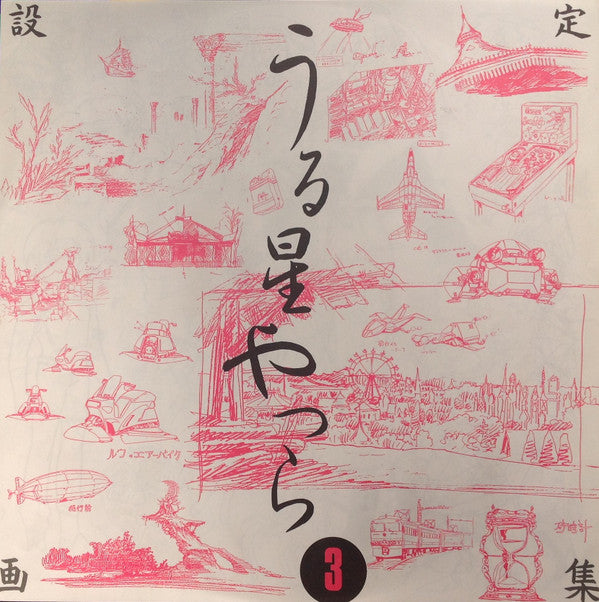 設定
画集
うる星やつら
3
ルフのエアーバイク
飛行船
砂時計